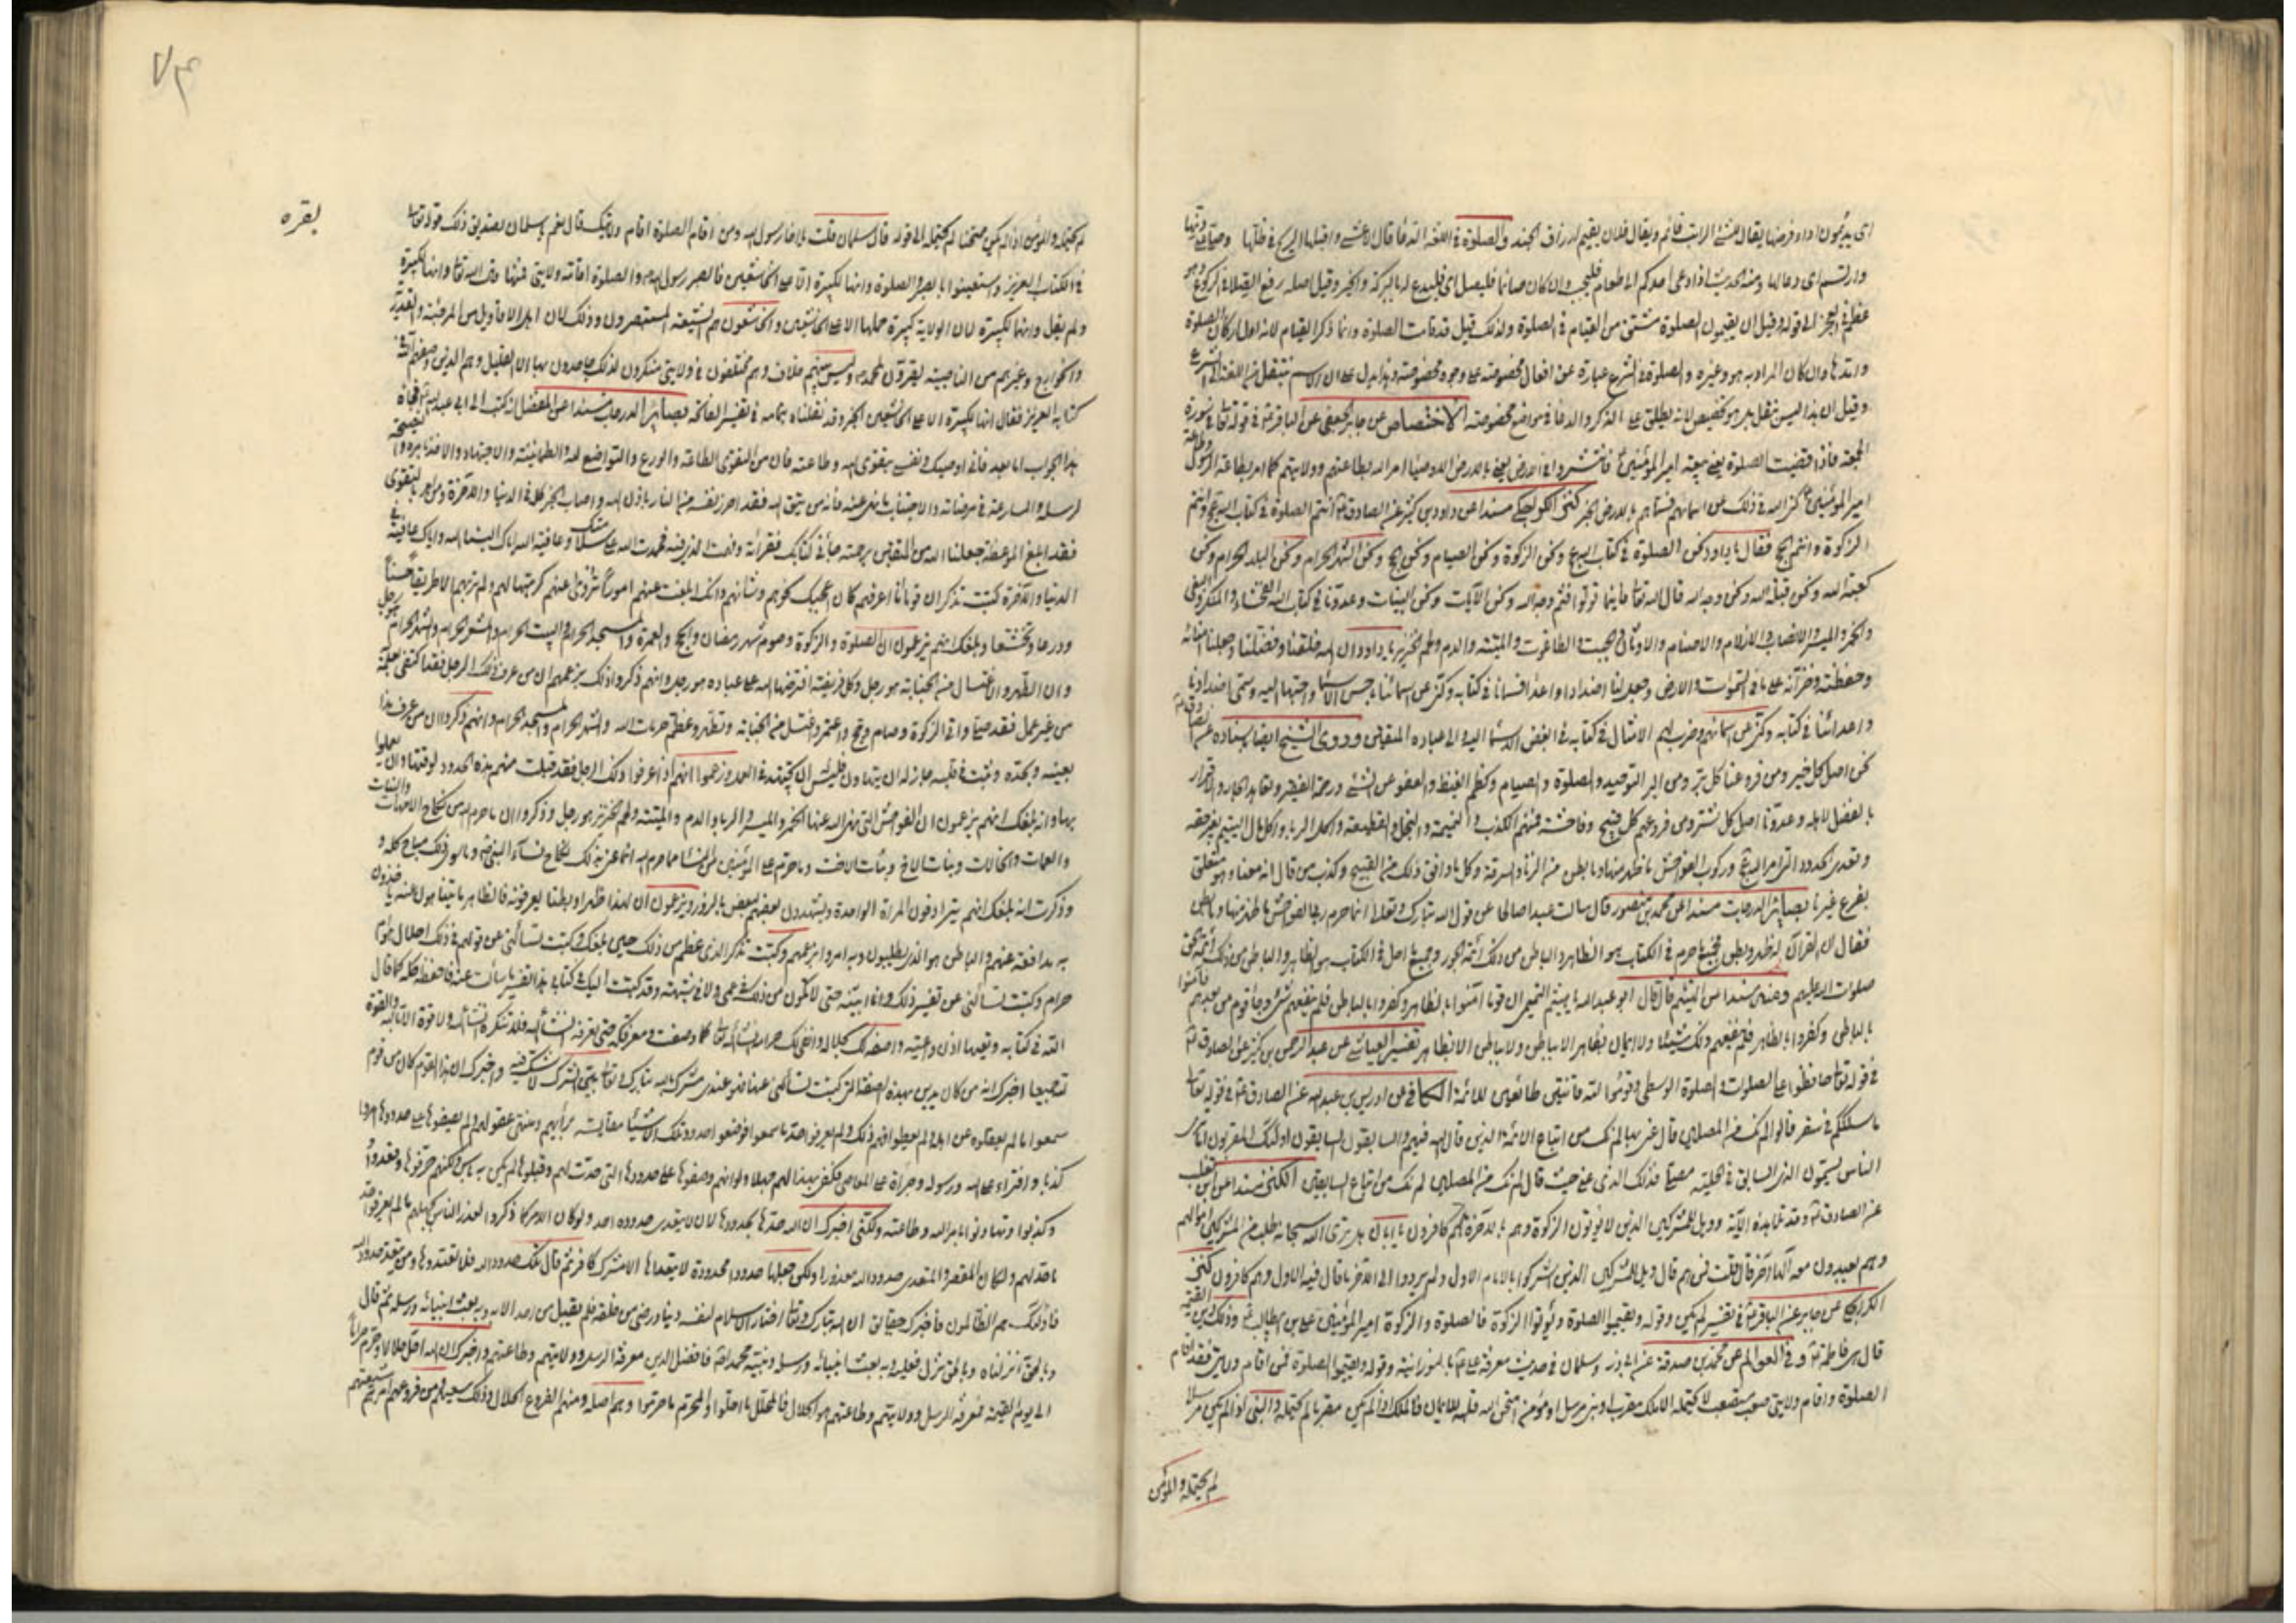 اى يديمون اداء فرضها يقال فلان يقيم ارزاق الجند والصلوة فى اللغة الدعاء قال الاعشى واقبلها الريح فى ظلها وصلى على دنها
وارتسم اى دعا لها ومنه الحديث اذا دعى احدكم الى طعام فليجب وان كان صائما فليصل اى فليدع له بالبركة والخير وقيل اصله رفع الصلا فى الركوع وهو
عظم فى العجز الى قوله وقيل ان يقيمون الصلوة مشتق من القيام فى الصلوة ولذلك قيل قد قامت الصلوة وانما ذكر القيام لانه اول اركان الصلوة
وامتدها وان كان المراد به هو وغيره والصلوة فى الشرع عبارة عن افعال مخصوصة على وجوه مخصوصة وهذا يدل على ان الاسم ينتقل من اللغة الى الشرع
وقيل ان هذا ليس بنقل بل هو تخصيص لانه يطلق على الذكر والدعاء فى مواضع مخصوصة الاختصاص عن جابر الجعفى عن الباقر ع فى قوله تعالى فى سورة
الجمعة فاذا قضيت الصلوة يعنى بيعة امير المؤمنين ع فانتشروا فى الارض يعنى بالارض الاوصياء امر الله بطاعتهم وولايتهم كما امر بطاعة الرسول وطاعة
امير المؤمنين ع كنى الله فى ذلك عن اسمائهم فسماهم بالارض الخبر كنز الكراجكى مسندا عن داود بن كثير عن الصادق ع انتم الصلوة فى كتاب الله عز وجل وانتم
الزكوة وانتم الحج فقال يا داود نحن الصلوة فى كتاب الله عز وجل ونحن الزكوة ونحن الصيام ونحن الحج ونحن الشهر الحرام ونحن البلد الحرام ونحن
كعبة الله ونحن قبلة الله ونحن وجه الله قال الله تعالى فاينما تولوا فثم وجه الله ونحن الآيات ونحن البينات وعدونا فى كتاب الله الفحشاء والمنكر والبغى
والخمر والميسر والانصاب والازلام والاصنام والاوثان والجبت والطاغوت والميتة والدم ولحم الخنزير يا داود ان الله خلقنا وفضلنا وجعلنا امنائه
وحفظته وخزانه على ما فى السموات والارض وجعل لنا اضدادا واعداء فسمانا فى كتابه وكنى عن اسمائنا باحسن الاسماء واحبها اليه وسمى اضدادنا
واعدائنا فى كتابه وكنى عن اسمائهم وضرب لهم الامثال فى كتابه فى ابغض الاسماء اليه والى عباده المتقين وروى الشيخ ايضا باسناده عن
نحن اصل كل خير ومن فروعنا كل بر ومن البر التوحيد والصلوة والصيام وكظم الغيظ والعفو عن المسئ ورحمة الفقير وتعاهد الجار والاقرار
بالفضل لاهله وعدونا اصل كل شر ومن فروعهم كل قبيح وفاحشة فمنهم الكذب والنميمة والبخل والقطيعة واكل الربا واكل مال اليتيم بغير حقه
وتعدى الحدود التى امر الله عز وجل وركوب الفواحش ما ظهر منها وما بطن من الزنا والسرقة وكل ما وافق ذلك من القبيح وكذب من قال انه معنا وهو متعلق
بفرع غيرنا بصائر الدرجات مسندا عن محمد بن منصور قال سالت عبدا صالحا عن قول الله تبارك وتعالى انما حرم ربى الفواحش ما ظهر منها وما بطن
فقال ان القرآن له ظهر وبطن فجميع ما حرم فى الكتاب هو الظاهر والباطن من ذلك ائمة الجور وجميع ما احل فى الكتاب هو الظاهر والباطن من ذلك ائمة الحق
صلوات الله عليهم وعنه مسندا عن الهيثم قال قال ابو عبد الله يا هيثم التميمى ان قوما آمنوا بالظاهر وكفروا بالباطن فلم ينفعهم شئ وجاء قوم من بعدهم فآمنوا
بالباطن وكفروا بالظاهر فلم ينفعهم ذلك شيئا ولا ايمان بظاهر الا بباطن ولا بباطن الا بظاهر تفسير العياشى عن عبد الرحمن بن كثير عن الصادق ع
فى قوله تعالى حافظوا على الصلوات والصلوة الوسطى وقوموا لله قانتين طائعين للائمة الكافى عن ادريس بن عبد الله عن الصادق ع فى قوله تعالى
ما سلككم فى سقر قالوا لم نك من المصلين قال عنى بها لم نك من اتباع الائمة الذين قال الله فيهم والسابقون السابقون اولئك المقربون اما ترى
الناس يسمون الذى يلى السابق فى الحلبة مصليا فذلك الذى عنى حيث قال لم نك من المصلين لم نك من اتباع السابقين الكنز مسندا عن ابان بن تغلب
عن الصادق ع وقد تلا هذه الآية وويل للمشركين الذين لا يؤتون الزكوة وهم بالآخرة هم كافرون يا ابان هل ترى الله سبحانه طلب من المشركين اموالهم
وهم يعبدون معه الها آخر قال قلت فمن هم قال ويل للمشركين الذين اشركوا بالامام الاول ولم يردوا الى الآخر ما قال فيه الاول وهم كافرون كنز
الكراجكى عن جابر عن الباقر ع فى تفسير لم يكن وقوله ويقيموا الصلوة ويؤتوا الزكوة فالصلوة والزكوة امير المؤمنين على بن ابى طالب ع وذلك دين القيمة
قال هى فاطمة ع وفى العوالم عن محمد بن صدقة عن ابى ذر وسلمان فى حديث معرفة على ع بالنورانية وقوله ويقيموا الصلوة فمن اقام ولايتى فقد اقام
الصلوة واقام ولايتى صعب مستصعب لا يحتمله الا ملك مقرب او نبى مرسل او مؤمن امتحن الله قلبه للايمان فالملك اذا لم يكن مقربا لم يحتمله والنبى اذا لم يكن مرسلا
لم يحتمله والمؤمن
بقره
لم يحتمله والمؤمن اذا لم يكن ممتحنا لم يحتمله الى قوله قال سلمان قلت يا اخا رسول الله ومن اقام الصلوة اقام ولايتك قال نعم يا سلمان تصديق ذلك قوله تعالى
فى الكتاب العزيز واستعينوا بالصبر والصلوة وانها لكبيرة الا على الخاشعين فالصبر رسول الله والصلوة اقامة ولايتى فمنها قال الله تعالى وانها لكبيرة
ولم يقل وانهما لكبيرة لان الولاية كبيرة حملها الا على الخاشعين والخاشعون هم الشيعة المستبصرون وذلك لان اهل الاقاويل من المرجئة والقدرية
والخوارج وغيرهم من الناصبية يقرون لمحمد ص ليس بينهم خلاف وهم مختلفون فى ولايتى منكرون لذلك جاحدون بها الا القليل وهم الذين وصفهم الله فى
كتابه العزيز فقال انها لكبيرة الا على الخاشعين الخبر وقد نقلناه بتمامه فى تفسير الفاتحة بصائر الدرجات مسندا عن المفضل انه كتب الى ابى عبد الله ع فجاء
هذا الجواب اما بعد فانى اوصيك ونفسى بتقوى الله وطاعته فان من التقوى الطاعة والورع والتواضع لله والطمانينة والاجتهاد والاخذ بامره والنصيحة
لرسله والمسارعة فى مرضاته والاجتناب ما نهى عنه فانه من يتق الله فقد احرز نفسه من النار باذن الله واصاب الخير كله فى الدنيا والآخرة ومن امر بالتقوى
فقد ابلغ الموعظة جعلنا الله من المتقين برحمته جائنى كتابك فقراته وفهمت الذى فيه فحمدت الله على سلامتك وعافية الله اياك البسنا الله واياك عافيته فى
الدنيا والآخرة كتبت تذكر ان قوما انا اعرفهم كان اعجبك نحوهم وشانهم وانك ابلغت عنهم امورا تروى عنهم كرهتها لهم ولم تر بهم الا طريقا حسنا
وورعا وتخشعا وبلغك انهم يزعمون ان الصلوة والزكوة وصوم شهر رمضان والحج والعمرة والمسجد الحرام والبيت الحرام والمشعر الحرام والشهر الحرام هو رجل
وان الطهر والاغتسال من الجنابة هو رجل وكل فريضة افترضها الله على عباده هو رجل وانهم ذكروا ذلك بزعمهم ان من عرف ذلك الرجل فقد اكتفى بعلمه
من غير عمل فقد صلى واتى الزكوة وصام وحج واعتمر واغتسل من الجنابة وتطهر وعظم حرمات الله والشهر الحرام والمسجد الحرام وانهم ذكروا ان من عرف هذا
بعينه وبحده وثبت فى قلبه جاز له ان يتهاون فليس له ان يجتهد فى العمل وزعموا انهم اذا عرفوا ذلك الرجل فقد قبلت منهم هذه الحدود لوقتها وان لم يعملوا
بها وانه بلغك انهم يزعمون ان الفواحش التى نهى الله عنها الخمر والميسر والربا والدم والميتة ولحم الخنزير هو رجل وذكروا ان ما حرم الله من نكاح الامهات والبنات
والعمات والخالات وبنات الاخ وبنات الاخت وما حرم على المؤمنين من النساء مما حرم الله انما عنى بذلك نكاح نساء النبى ص وما سوى ذلك مباح كله و
وذكرت انه بلغك انهم يترادفون المراة الواحدة ويشهدون بعضهم لبعض بالزور ويزعمون ان لهذا ظهرا وبطنا يعرفونه فالظاهر ما يتناهون عنه ياخذون
به مدافعة عنهم والباطن هو الذى يطلبون وبه امروا بزعمهم وكتبت تذكر الذى عظم من ذلك حين بلغك وكتبت تسالنى عن قولهم فى ذلك احلال هو ام
حرام وكتبت تسالنى عن تفسير ذلك وانا ابينه حتى لا تكون من ذلك فى عمى ولا فى شبهة وقد كتبت اليك فى كتابى هذا تفسير ما سالت عنه فاحفظه كله كما قال
الله فى كتابه وتعيها اذن واعية واصفه لك بحلاله وانفى عنك حرامه ان شاء الله تعالى كما وصفت ومعرفكه حتى تعرفه ان شاء الله فلا تنكره ان شاء الله ولا قوة الا بالله والقوة
لله جميعا اخبرك انه من كان يدين بهذه الصفة التى كتبت تسالنى عنها فهو عندى مشرك بالله تبارك وتعالى بين الشرك لا شك فيه واخبرك ان هذا القول كان من قوم
سمعوا ما لم يعقلوه عن اهله ولم يعطوا فهم ذلك ولم يعرفوا حد ما سمعوا فوضعوا حدود تلك الاشياء مقايسة برايهم ومنتهى عقولهم ولم يضعوها على حدود ما امروا
كذبا وافتراء على الله ورسوله وجراة على المعاصى فكفى بهذا لهم جهلا ولو انهم وضعوها على حدودها التى حدت لهم وقبلوها لم يكن به باس ولكنهم حرفوها وتعدوا
وكذبوا وتهاونوا بامر الله وطاعته ولكنى اخبرك ان الله حدها بحدودها لان لا يتعدى حدوده احد ولو كان الامر كما ذكروا لعذر الناس بجهلهم ما لم يعرفوا حد
ما حد لهم ولكان المقصر والمتعدى حدود الله معذورا ولكن جعلها حدودا محدودة لا يتعداها الا مشرك كافر ثم قال تلك حدود الله فلا تعتدوها ومن يتعد حدود الله
فاولئك هم الظالمون فاخبرك حقايق ان الله تبارك وتعالى اختار الاسلام لنفسه دينا ورضى من خلقه فلم يقبل من احد الا به وبه بعث انبيائه ورسله ثم قال
وبالحق انزلناه وبالحق نزل فعليه وبه بعث انبيائه ورسله ونبيه محمد ص فافضل الدين معرفة الرسل وولايتهم وطاعتهم واخبرك ان الله احل حلالا وحرم حراما
الى يوم القيمة فمعرفة الرسل وولايتهم وطاعتهم هو الحلال فالمحلل ما احلوا والمحرم ما حرموا وهم اصله ومنهم الفروع الحلال وذلك سعيهم ومن فروعهم امرهم شيعتهم